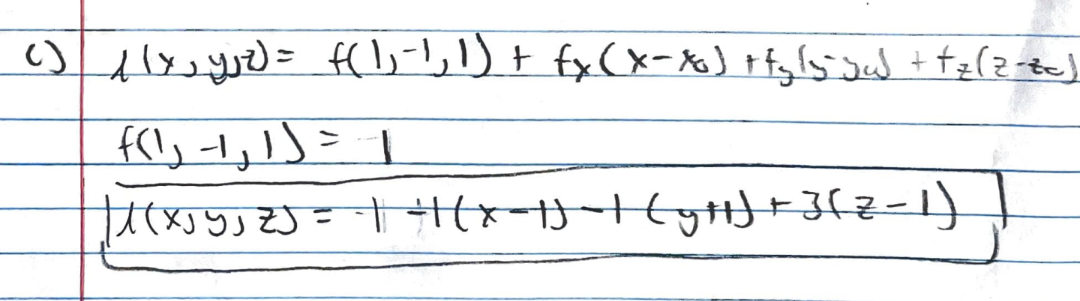 c) L(x,y,z) = f(1,-1,1) + fx(x-x₀) + fy(y-y₀) + fz(z-z₀)
f(1,-1,1) = -1
L(x,y,z) = -1 +1(x-1) -1(y+1) + 3(z-1)